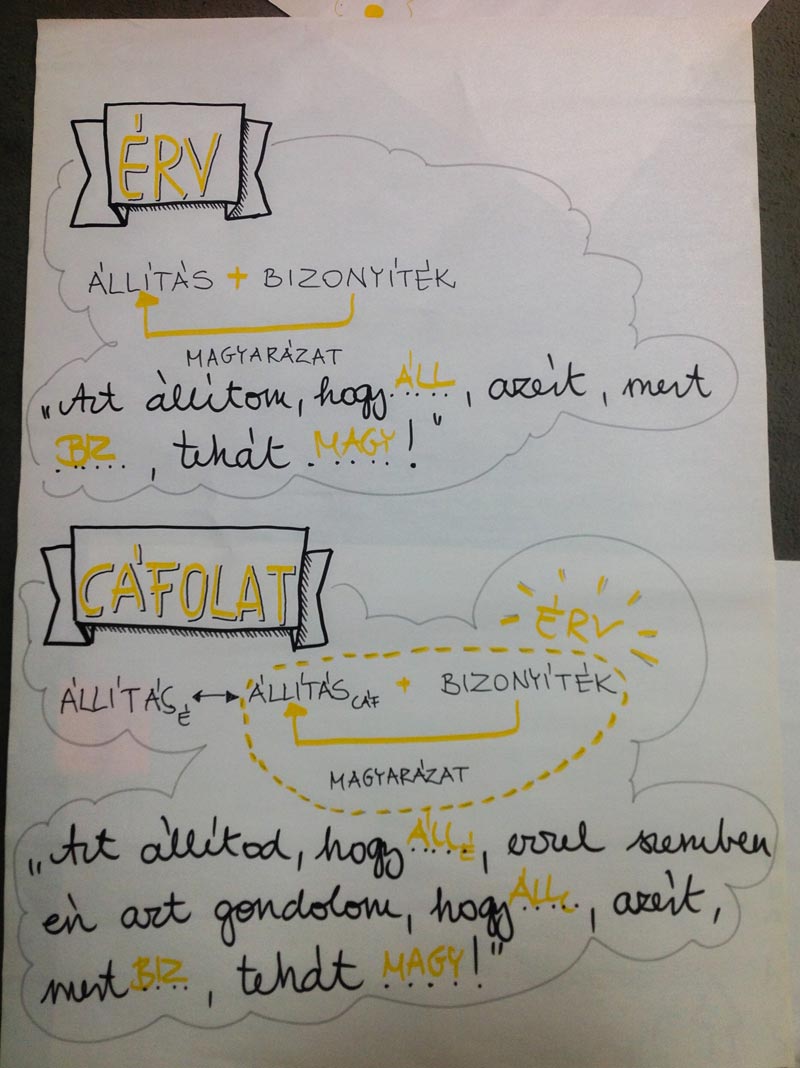 ÉRV
ÁLLÍTÁS + BIZONYÍTÉK
MAGYARÁZAT
„Azt állítom, hogy ÁLL....., azért, mert
BIZ....., tehát MAGY.....!"
CÁFOLAT
ÉRV
ÁLLÍTÁS É ↔ ÁLLÍTÁS CÁF + BIZONYÍTÉK
MAGYARÁZAT
„Azt állítod, hogy ÁLL É....., ezzel szemben
én azt gondolom, hogy ÁLL C....., azért,
mert BIZ....., tehát MAGY.....!"